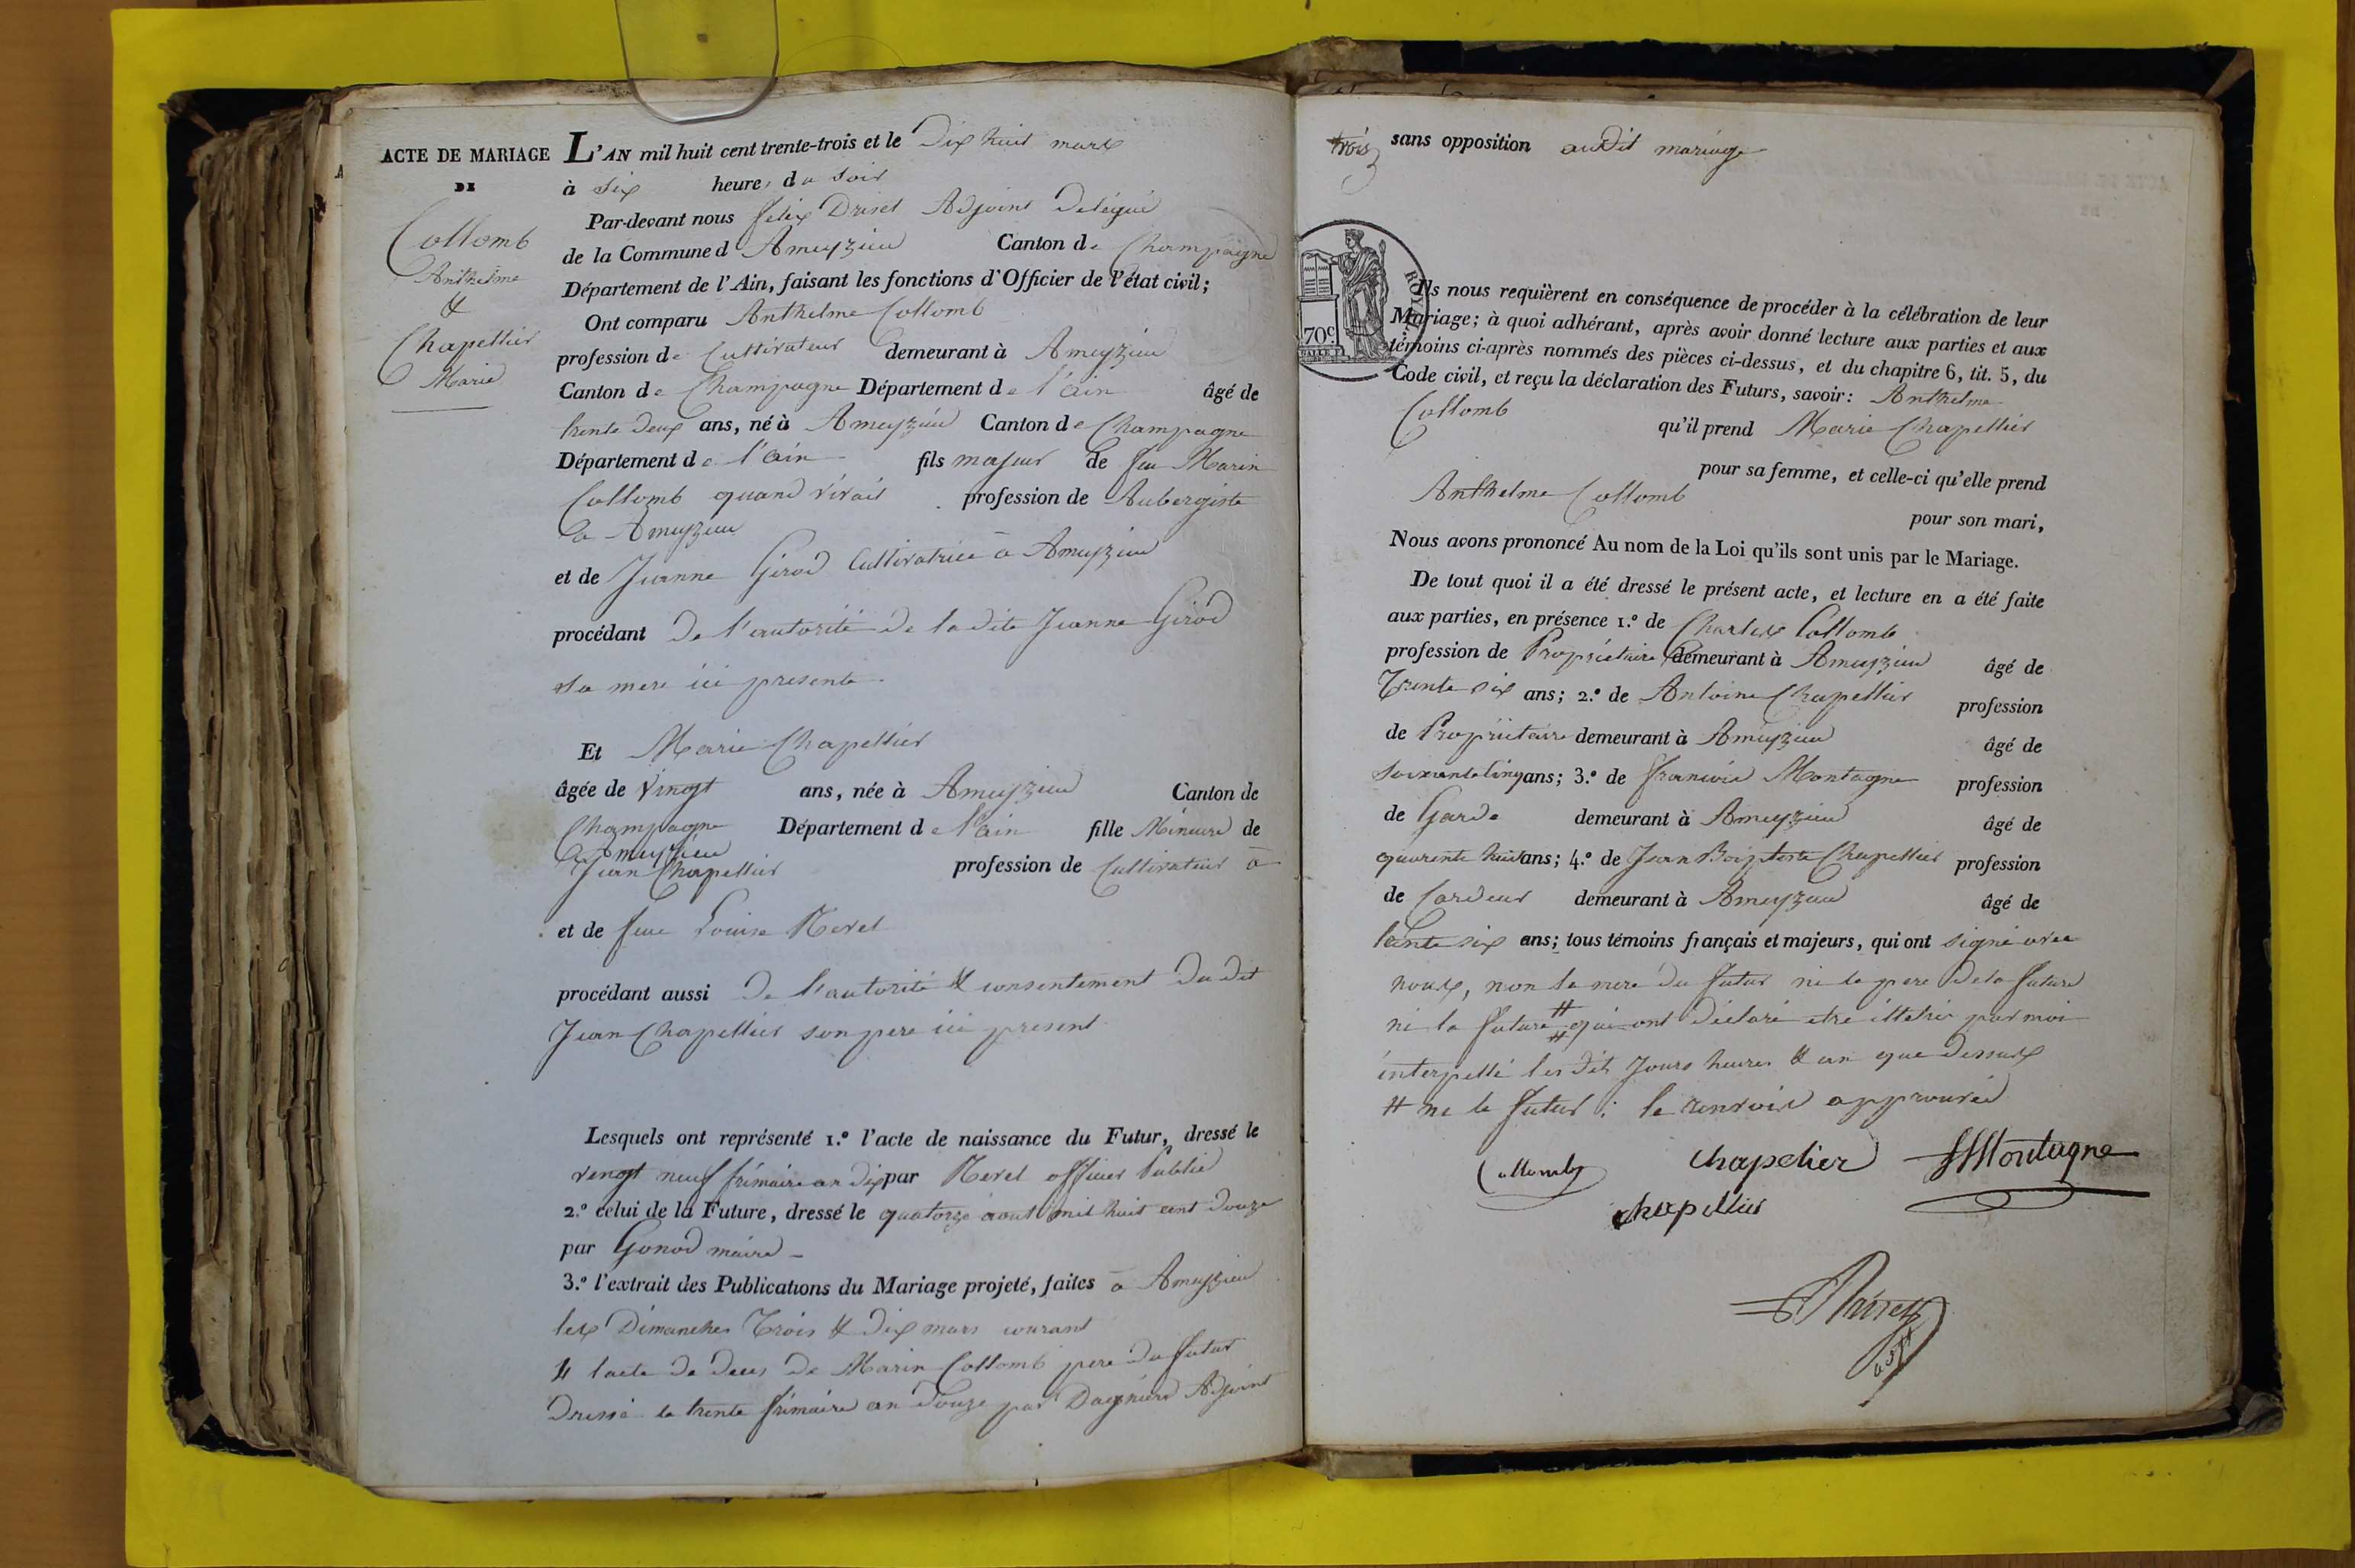 ACTE DE MARIAGE
DE
Collomb
Anthelme
&
Chapellier
Marie
L'AN mil huit cent trente-trois et le Dix huit mars
à Six heures du Soir
Par-devant nous felix Adjoint Delégué
de la Commune d Ameyzieu Canton de Champagne
Département de l'Ain, faisant les fonctions d'Officier de l'état civil;
Ont comparu Anthelme Collomb
profession de Cultivateur demeurant à Ameyzieu
Canton de Champagne Département de l'ain âgé de
trente deux ans, né à Ameyzieu Canton de Champagne
Département de l'ain fils majeur de feu Marin
Collomb quand vivait profession de Aubergiste
a Ameyzieu
et de Jeanne Girod Cultivatrice a Ameyzieu
procédant De l'autorité de ladite Jeanne Girod
sa mere ici presente.
Et Marie Chapellier
âgée de vingt ans, née à Ameyzieu Canton de
Champagne Département de l'ain fille Mineure de
a Ameyzieu
Jean Chapellier profession de Cultivateur a
et de feue Louise
procédant aussi De l'autorité & consentement du dit
Jean Chapellier son pere ici present
Lesquels ont représenté 1.º l'acte de naissance du Futur, dressé le
vingt neuf frimaire an dix par officier Public
2.º celui de la Future, dressé le quatorze aout mil huit cent douze
par Gonod maire
3.º l'extrait des Publications du Mariage projeté, faites a Ameyzieu
les Dimanches Trois & dix mars courant
4 l'acte de deces de Marin Collomb pere du futur
Dressé le trente frimaire an douze par Adjoint
trois sans opposition audit mariage
ROYAL
70c.
Ils nous requièrent en conséquence de procéder à la célébration de leur
Mariage; à quoi adhérant, après avoir donné lecture aux parties et aux
témoins ci-après nommés des pièces ci-dessus, et du chapitre 6, tit. 5, du
Code civil, et reçu la déclaration des Futurs, savoir: Anthelme
Collomb qu'il prend Marie Chapellier
pour sa femme, et celle-ci qu'elle prend
Anthelme Collomb
pour son mari,
Nous avons prononcé Au nom de la Loi qu'ils sont unis par le Mariage.
De tout quoi il a été dressé le présent acte, et lecture en a été faite
aux parties, en présence 1.º de Charles Collomb
profession de Propriétaire demeurant à Ameyzieu âgé de
Trente six ans; 2.º de Antoine Chapellier profession
de Propriétaire demeurant à Ameyzieu âgé de
soixante cinq ans; 3.º de francois Montagne profession
de Garde demeurant à Ameyzieu âgé de
quarente huit ans; 4.º de Jean Baptiste Chapellier profession
de Cardeur demeurant à Ameyzieu âgé de
trente six ans; tous témoins français et majeurs, qui ont signé avec
nous, non la mere du futur ni le pere de la future
ni la future # qui ont déclaré etre illetré par moi
interpellé les dit Jours heures & an que dessus
# ni le futur; le renvoie approuvée
Collomb Chapelier Montagne
chapellier